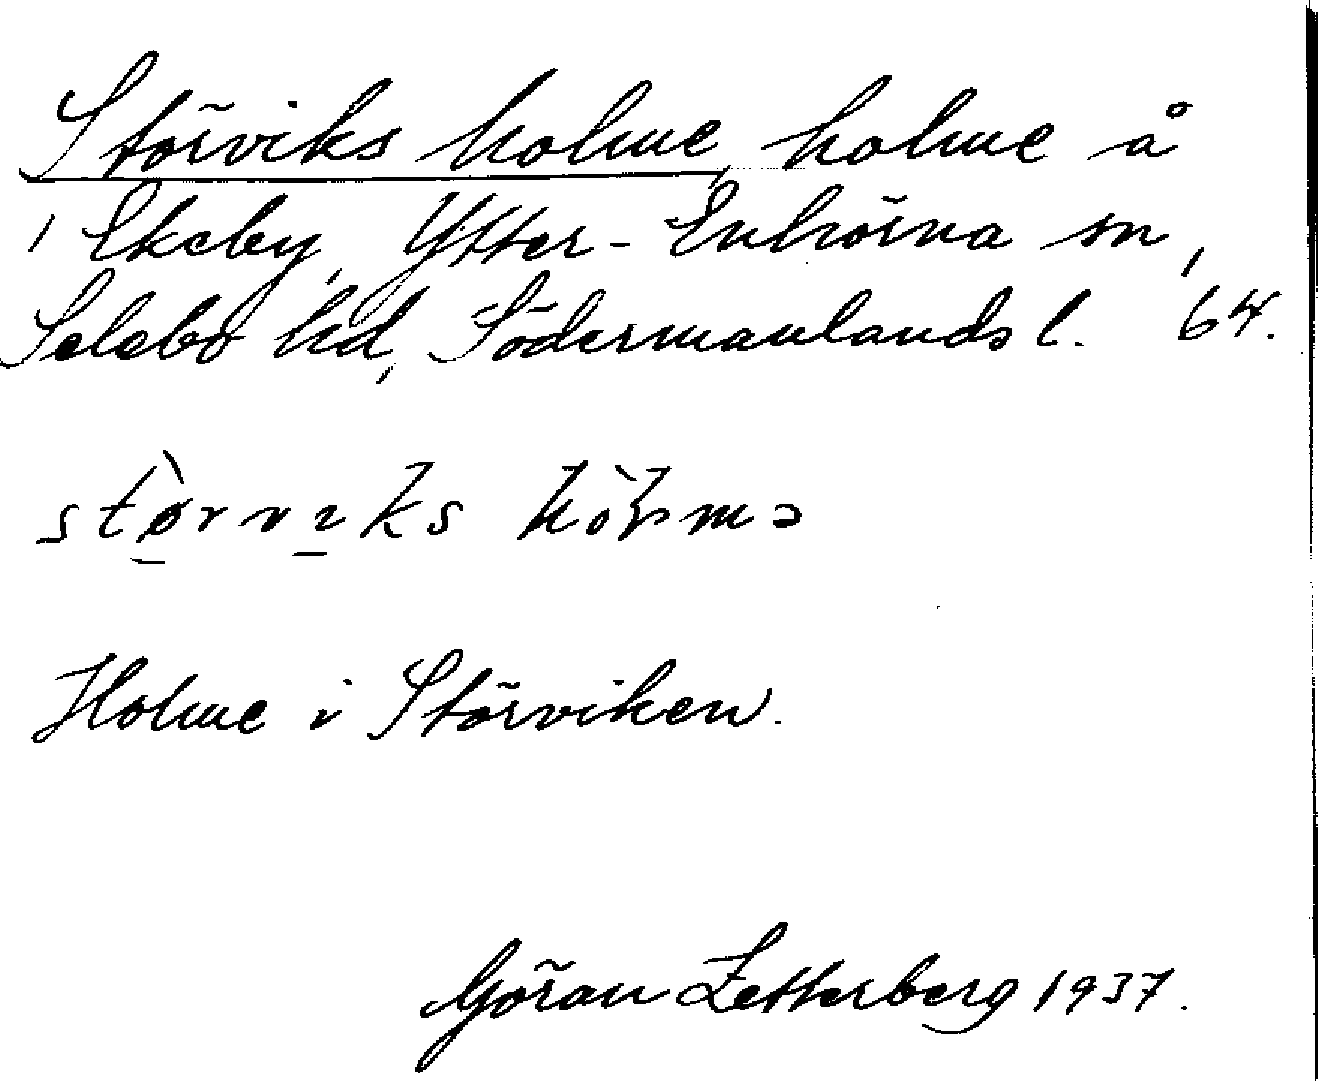 Störviks holme, holme å
i Ekeby, Ytter-Enhörna sn,
Selebo hd, Södermanlands l. 64.
stø̀rviks hòlmə
Holme i Störviken.
Göran Zetterberg 1937.